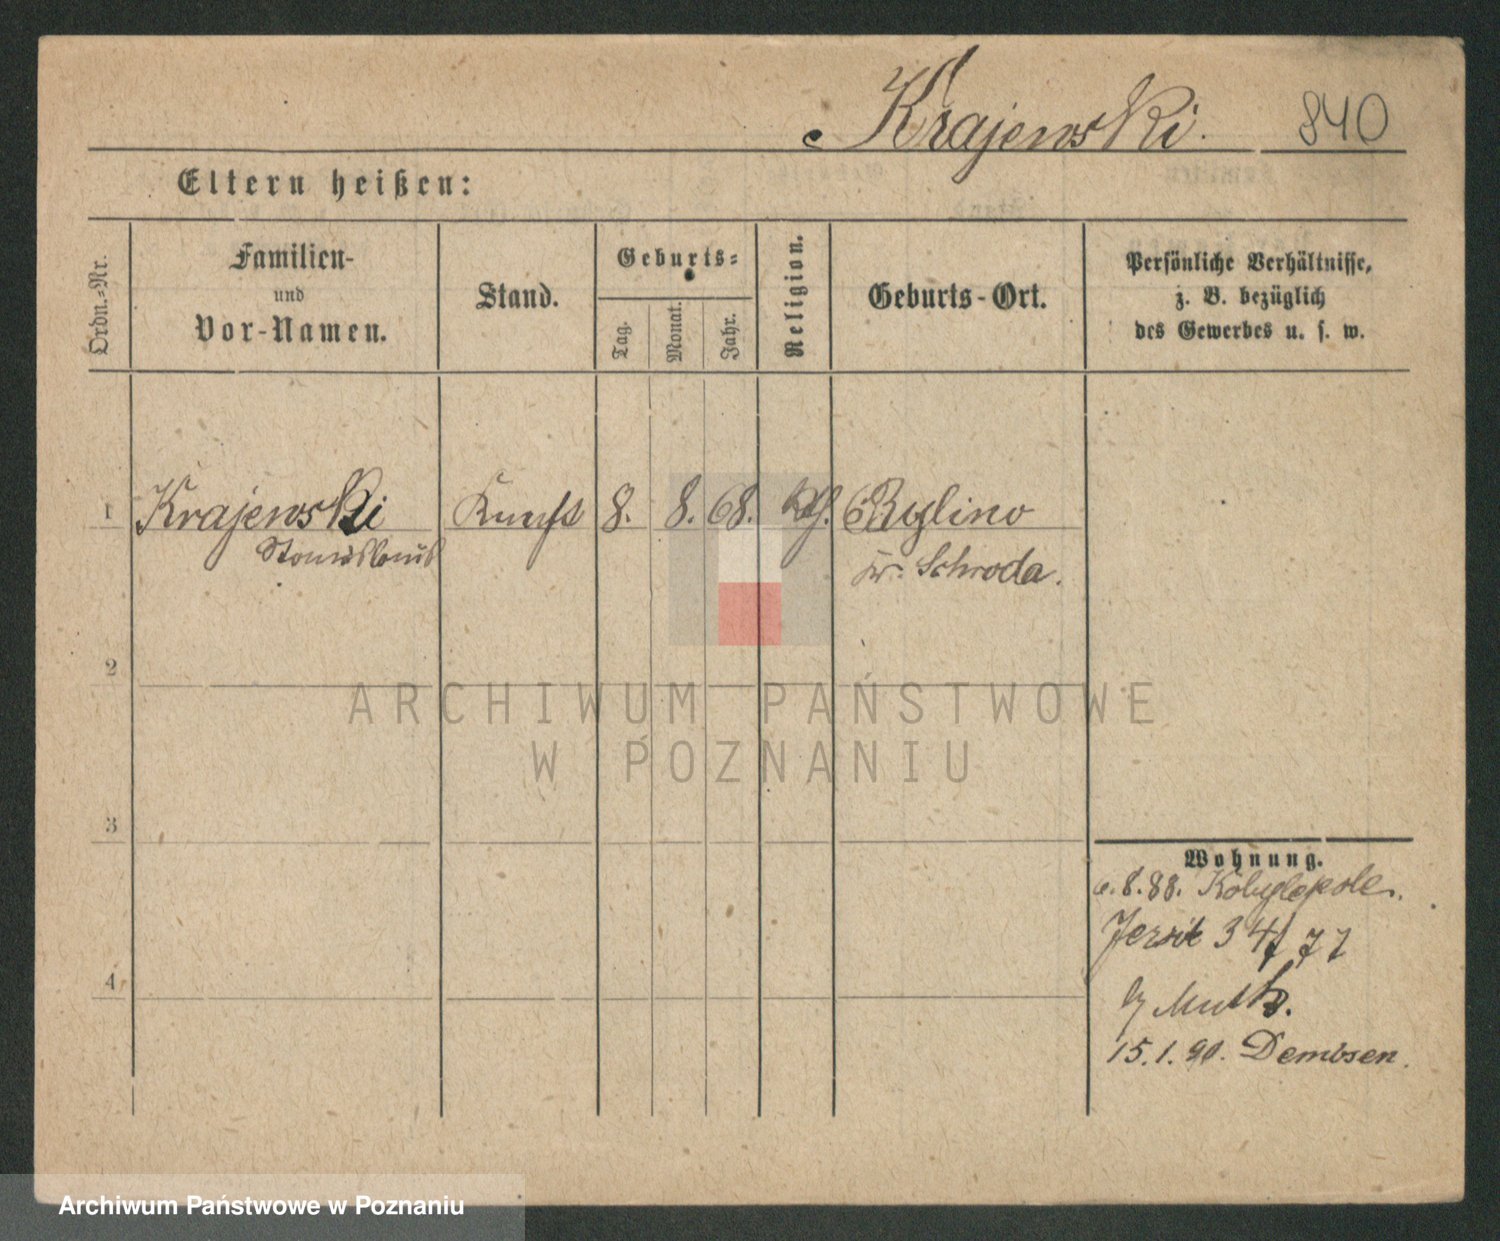 Krajewski. 840
Eltern heißen:
Ordn.-Nr.
Familien-
und
Vor-Namen.
Stand.
Geburts-
Tag.
Monat.
Jahr.
Religion.
Geburts-Ort.
Persönliche Verhältnisse,
z. B. bezüglich
des Gewerbes u. s. w.
1 Krajewski 8. 8. 68. Rylino
Stanislaus Kr. Schroda.
2
3
4
Wohnung.
8.88. Kobylepole.
Jersitz 34/77
b/ Muth.
15.1.90. Dembsen.
ARCHIWUM PAŃSTWOWE
W POZNANIU
Archiwum Państwowe w Poznaniu